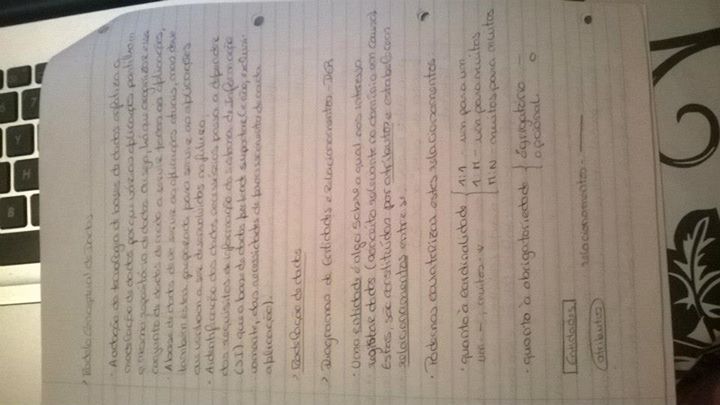 > Modelo conceptual de Dados
· A adoção da tecnologia de bases de dados obriga a
modelação de dados porque várias aplicações partilham
o mesmo repositório de dados ou seja, há que conceber esse
conjunto de dados de modo a servir todas as aplicações.
· A base de dados deve servir as aplicações atuais, mas deve
também estar preparada para servir as aplicações
que venham a ser desenvolvidas no futuro.
· A identificação dos dados necessários passa a depender
dos requisitos de informação do sistema de Informação
(SI) que a base de dados pretende suportar (e não, exclusi-
vamente, das necessidades de processamento de cada
aplicação).
> Modelação de dados
> Diagramas de Entidades e Relacionamentos - DER
· Uma entidade é algo sobre o qual nos interessa
registar dados (conceito relevante no domínio em causa).
Estas, são constituídas por atributos e estabelecem
relacionamentos entre si.
· Podemos caraterizar estes relacionamentos
· quanto à cardinalidade { 1:1 - um para um
1:M - um para muitos
M:N - muitos para muitos
um - , muitos -
· quanto à obrigatoriedade { obrigatório -
opcional o
Entidades relacionamentos -
atributos